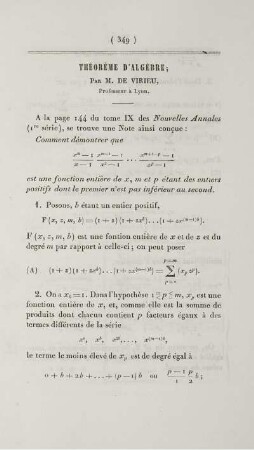 ( 349 )
THÉORÈME D'ALGÈBRE;
PAR M. DE VIRIEU,
Professeur à Lyon.
A la page 144 du tome IX des Nouvelles Annales
(1re série), se trouve une Note ainsi conçue :
Comment démontrer que
est une fonction entière de x, m et p étant des entiers
positifs dont le premier n'est pas inférieur au second.
1. Posons, b étant un entier positif,
F(x, z, m, b) = (1 + z)(1 + zx^b)...(1 + zx^{(m-1)b}).
F(x, z, m, b) est une fonction entière de x et de z et du
degré m par rapport à celle-ci; on peut poser
(A) (1 + z)(1 + zx^b)...(1 + zx^{(m-1)b}) =
2. On a x_0 = 1. Dans l'hypothèse 1 ≤ p ≤ m, x_p est une
fonction entière de x, et, comme elle est la somme de
produits dont chacun contient p facteurs égaux à des
termes différents de la série
x^0, x^b, x^{2b}, ..., x^{(m-1)b},
le terme le moins élevé de x_p est de degré égal à
o + b + 2b + ... + (p-1)b ou \frac{p-1}{1} \frac{p}{2} b;